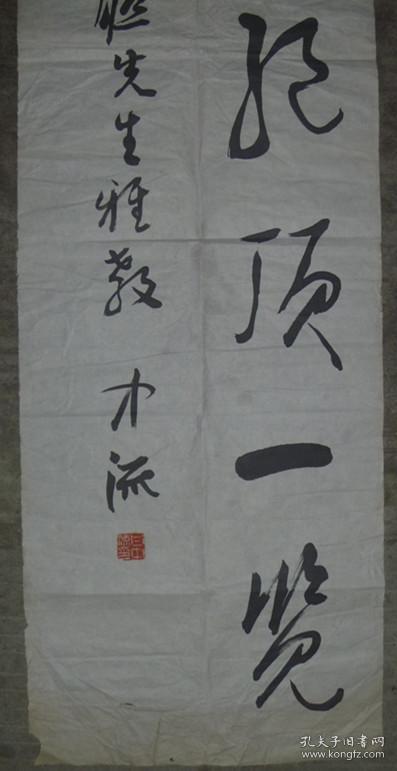 绝顶一览
先生雅教
流
孔夫子旧书网
www.kongfz.com